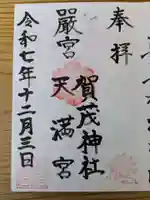 奉拝
賀茂神社
天満宮
嚴宮
令和七年十二月三日